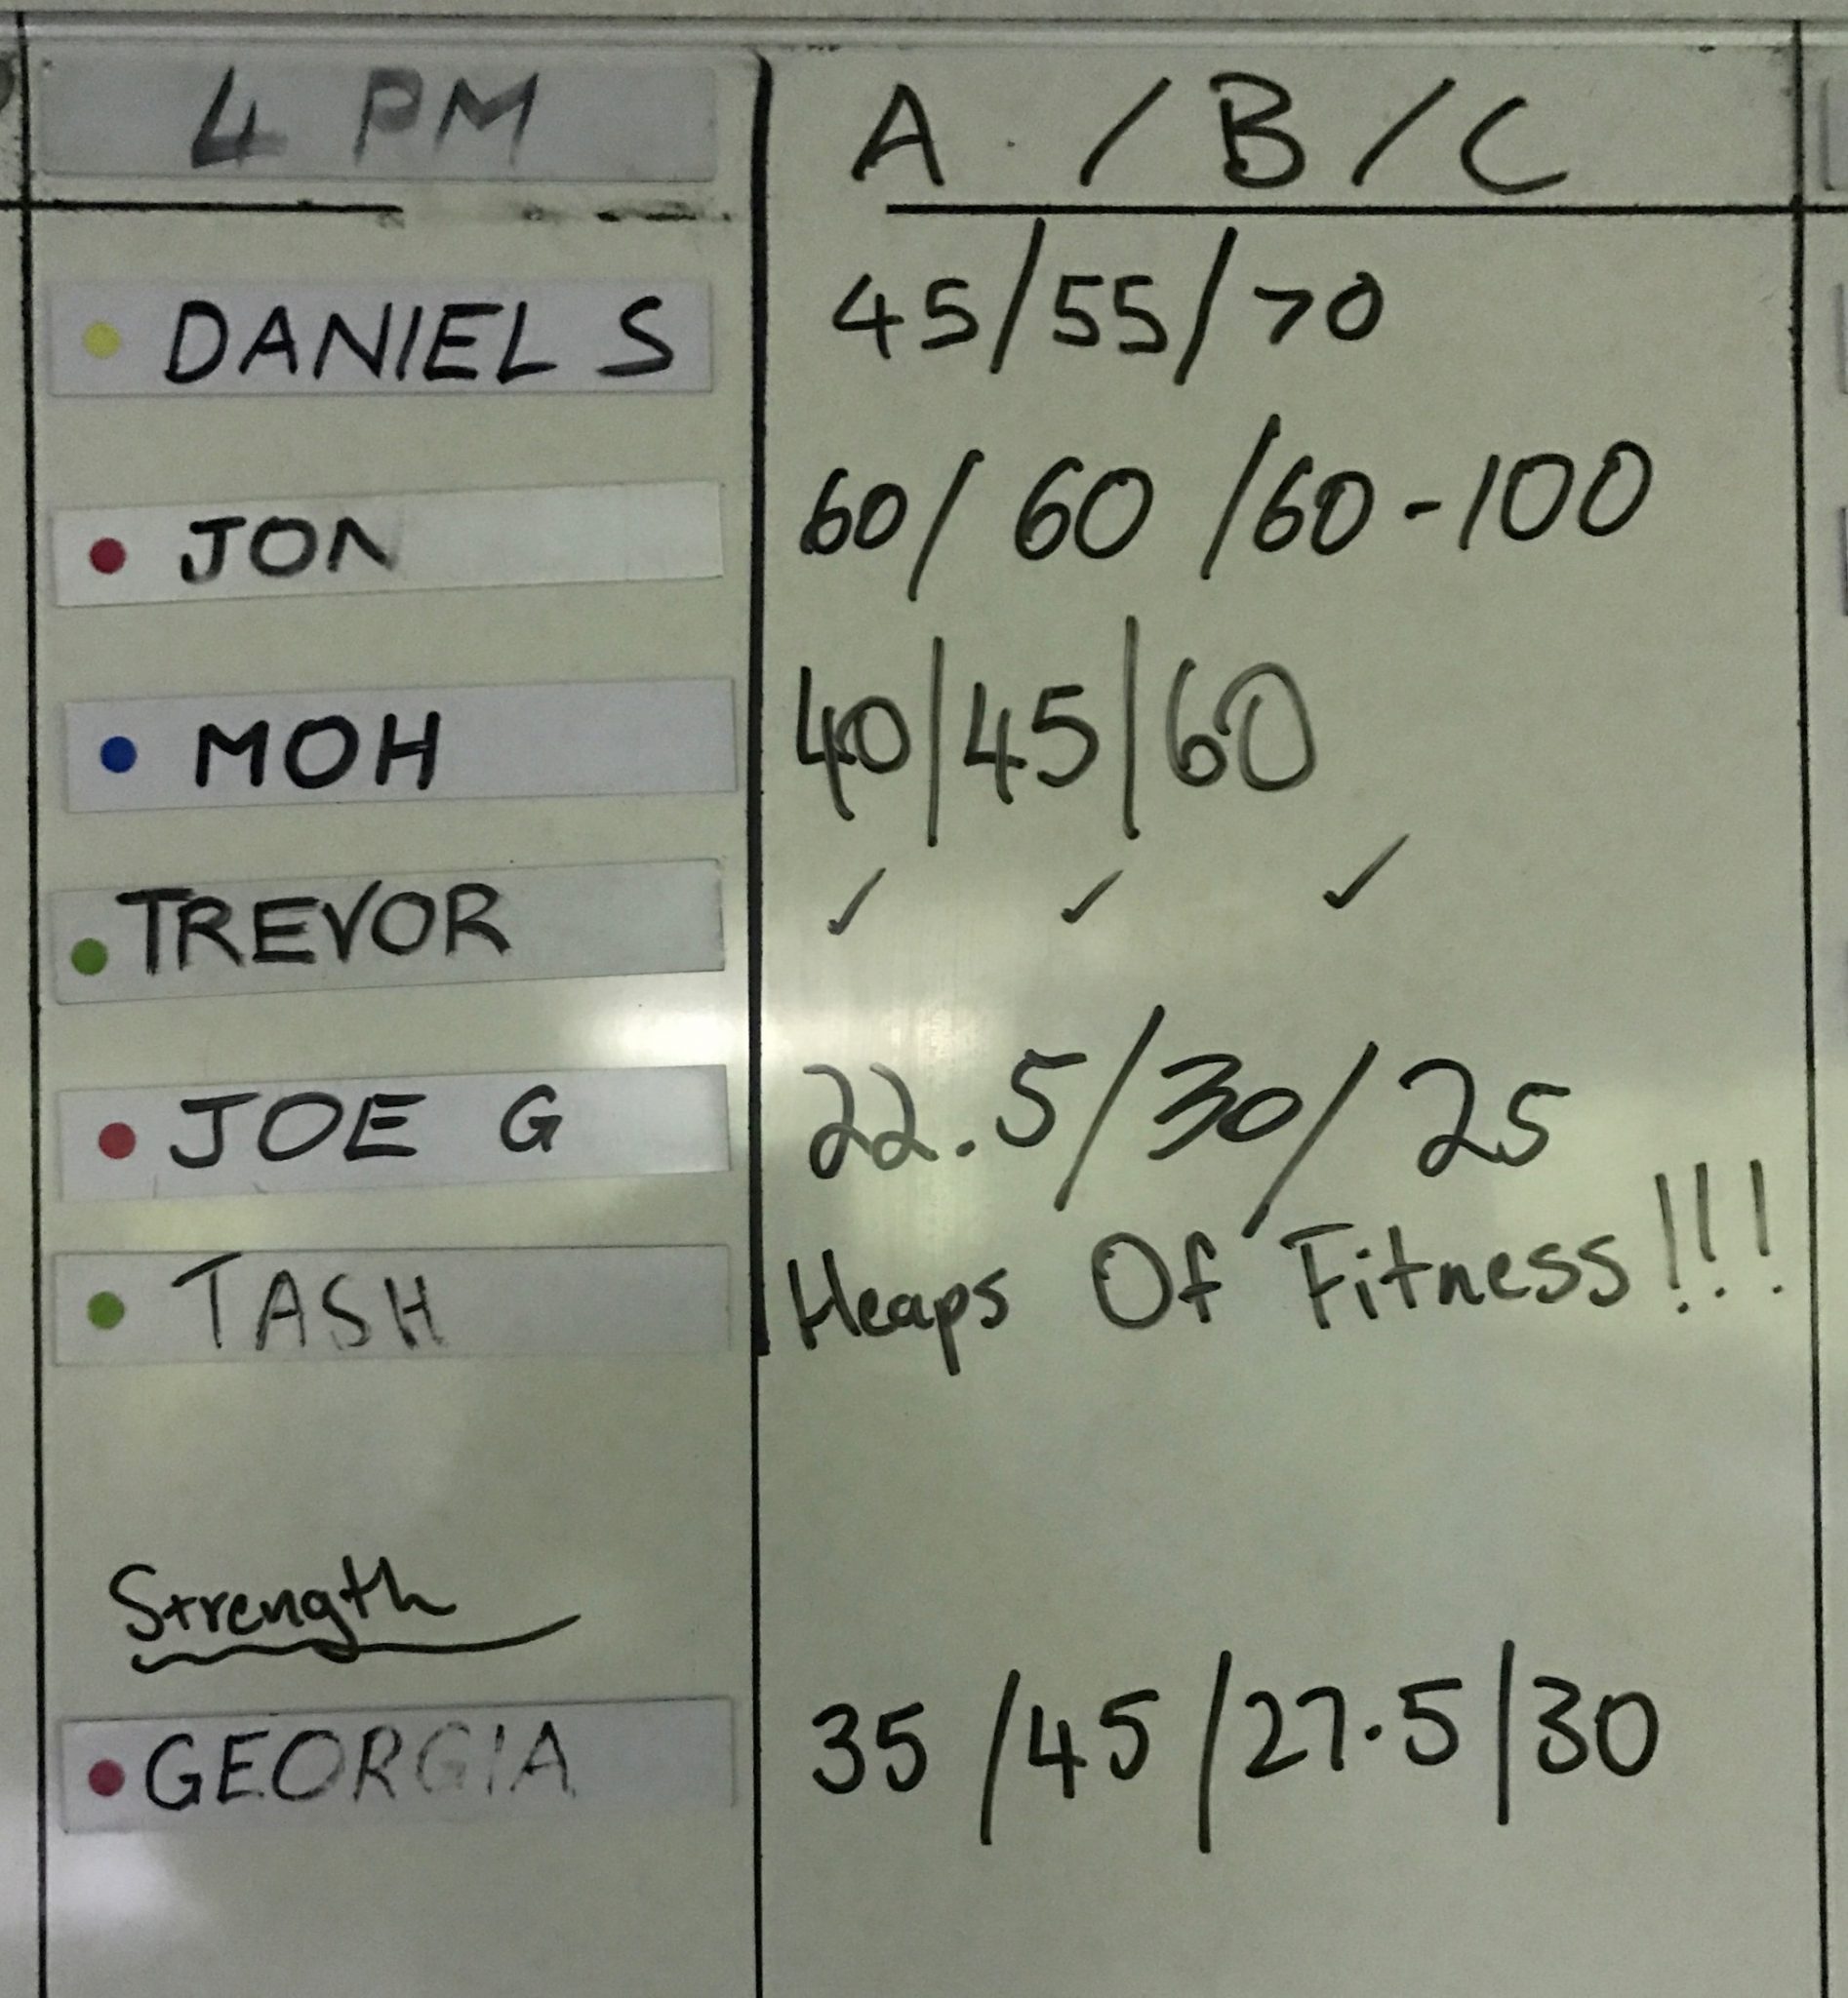 4 PM A / B / C
DANIEL S 45/55/70
JON 60/ 60 /60-100
MOH 40|45|60
TREVOR ✓ ✓ ✓
JOE G 22.5/30/25
TASH Heaps Of Fitness!!!
Strength
GEORGIA 35 /45 /27.5|30